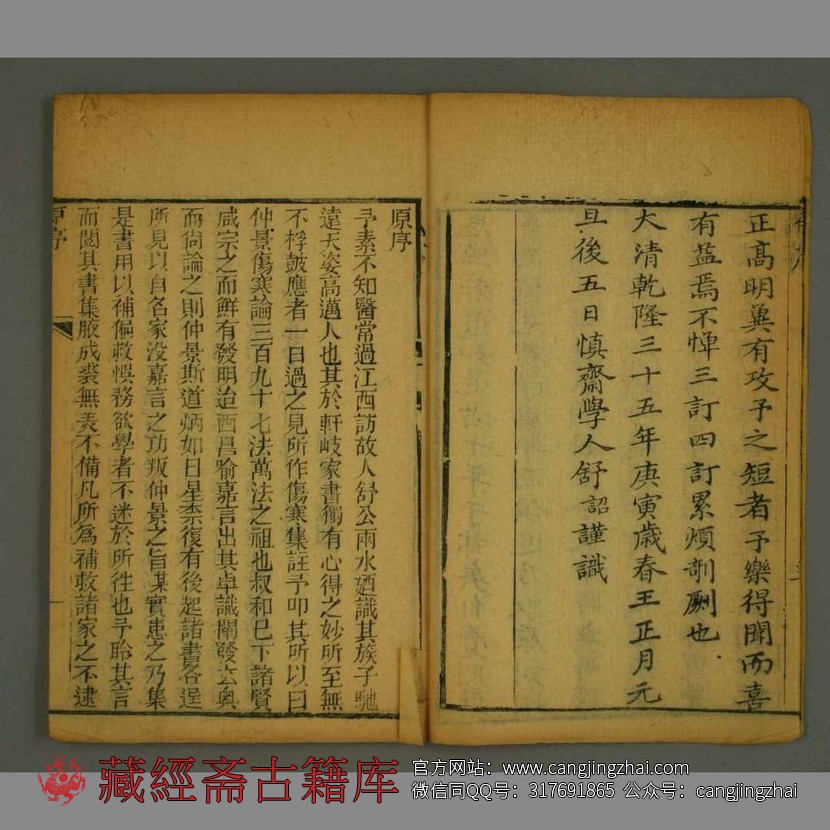 正高明冀有攻予之短者予樂得聞而喜
有益焉不憚三訂四訂累煩剞劂也
大清乾隆三十五年庚寅歲春王正月元
旦後五日慎齋學人舒詔謹識
原序
予素不知醫常過江西訪故人舒公兩水廼識其族子馳
遠天姿高邁人也其於軒岐家書獨有心得之妙所至無
不桴皷應者一日過之見所作傷寒集註予叩其所以曰
仲景傷寒論三百九十七法萬法之祖也叔和巳下諸賢
咸宗之而鮮有發明迨西昌喻嘉言出其卓識闡發玄奥
而尙論之則仲景斯道炳如日星柰復有後起諸書各逞
所見以自名家没嘉言之功叛仲景之旨某實患之乃集
是書用以補偏救悞務欲學者不迷於所徃也予聆其言
而閱其書集腋成裘無美不備凡所爲補救諸家之不逮
原序
藏經斋古籍库
官方网站：www.cangjingzhai.com
微信同QQ号：317691865 公众号：cangjingzhai